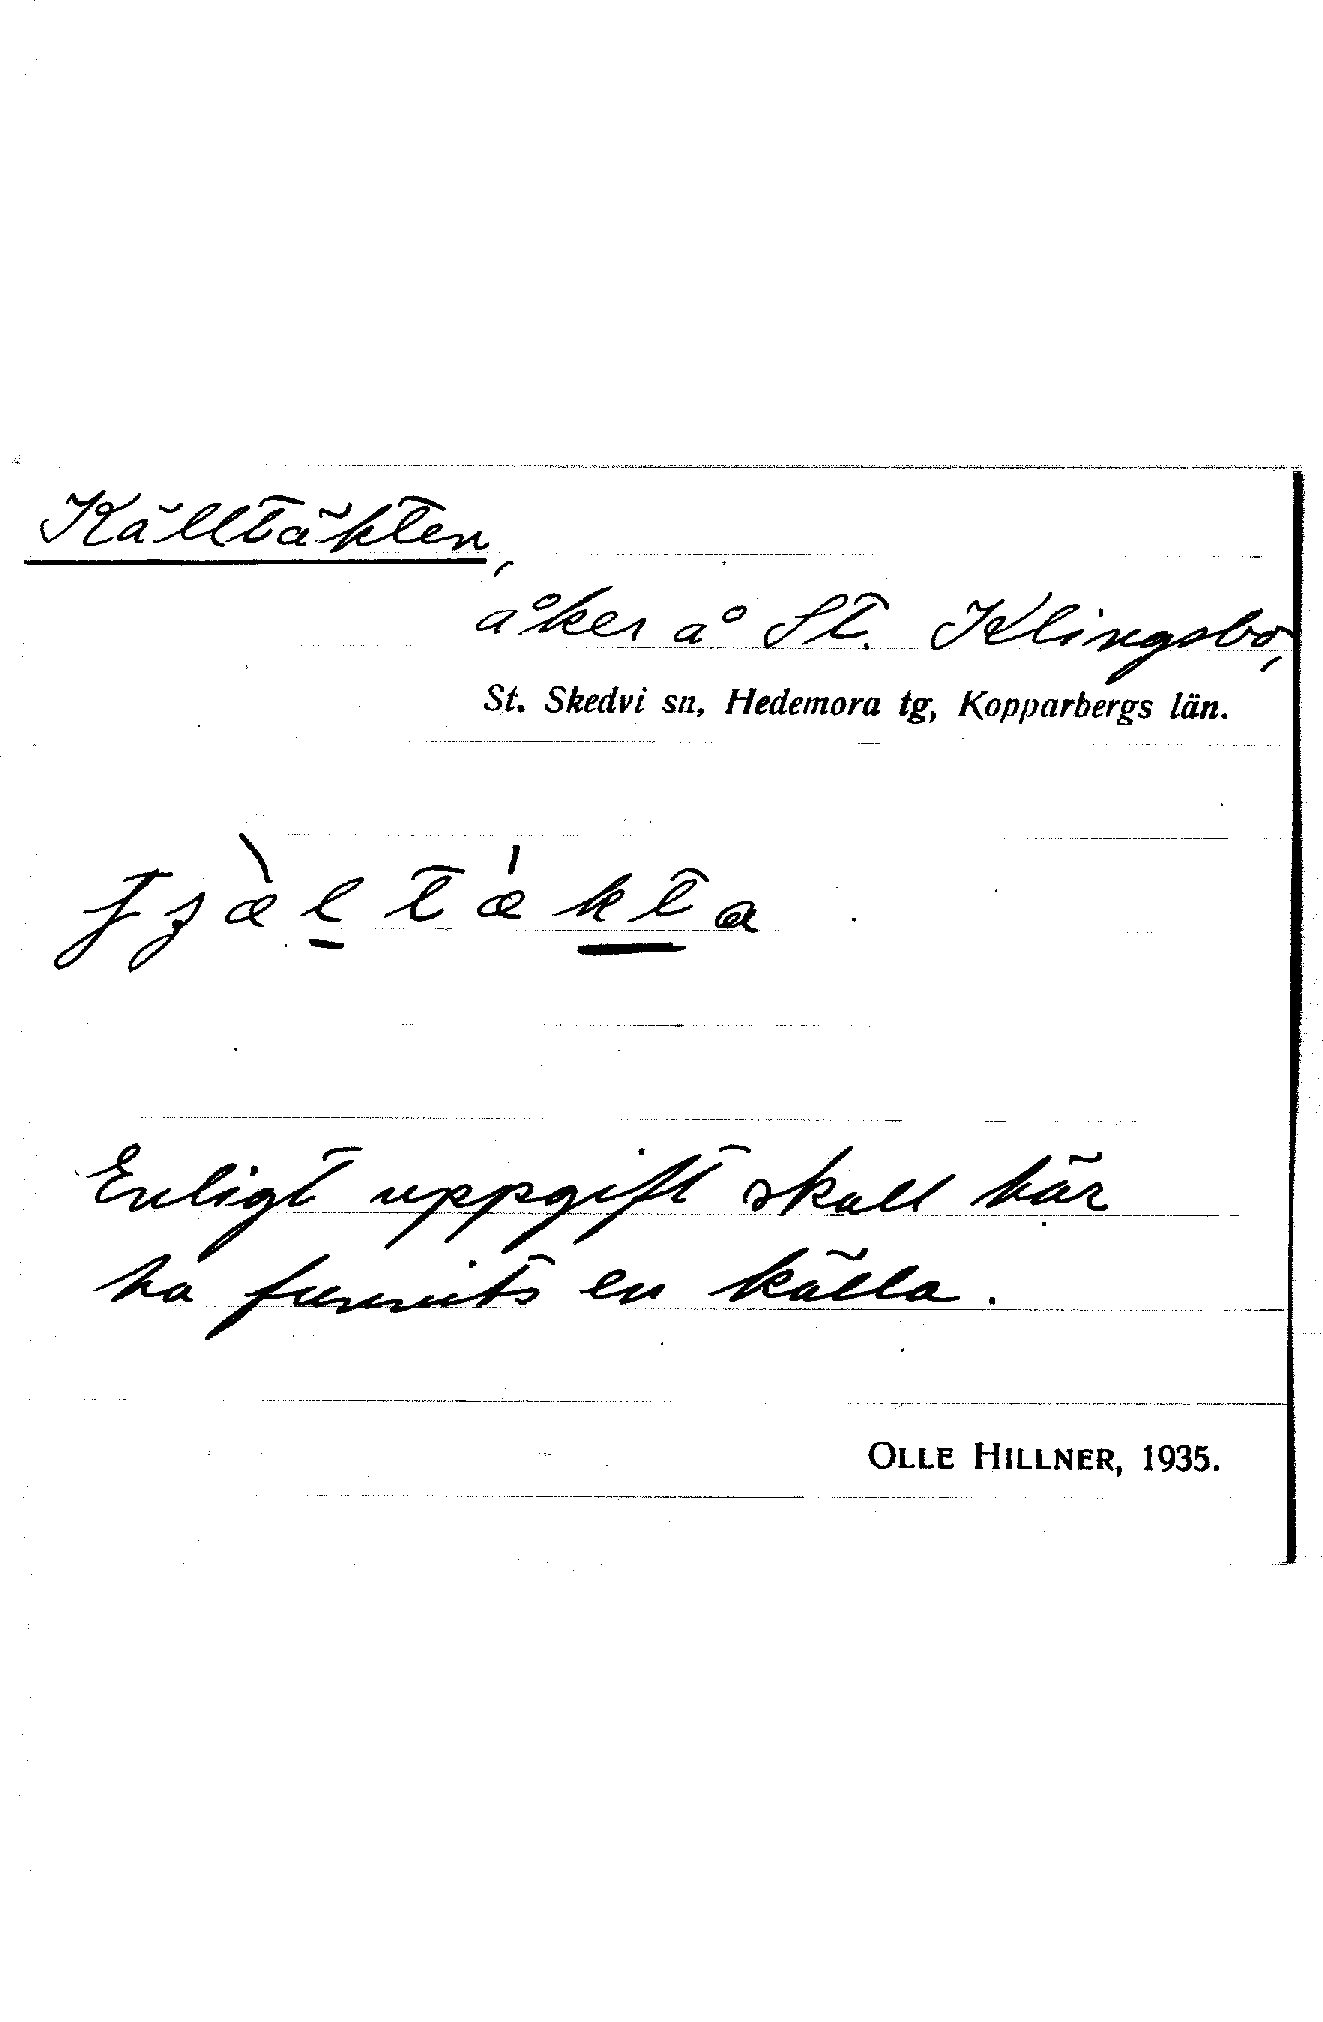 Källtäkten,
åker å St. Klingsbo,
St. Skedvi sn, Hedemora tg, Kopparbergs län.
Enligt uppgift skall här
ha funnits en källa.
OLLE HILLNER, 1935.